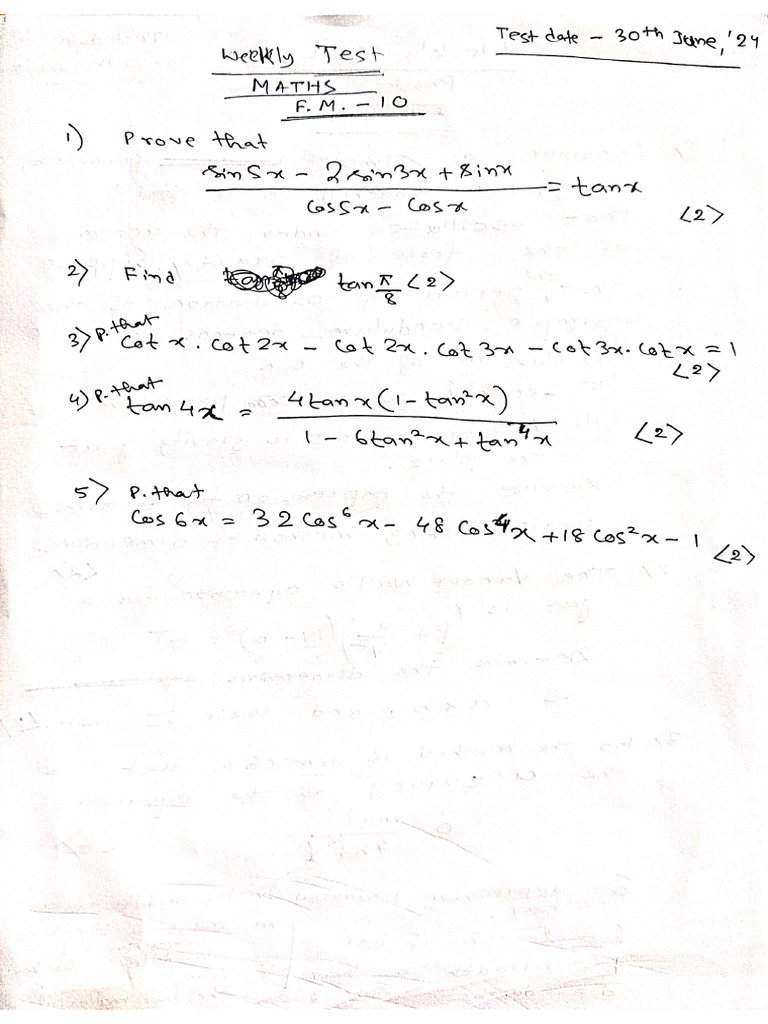 Test date - 30th June, '24
Weekly Test
MATHS
F.M. - 10
1) Prove that
sin5x - 2 sin3x + sinx / cos5x - cosx = tanx <2>
2) Find tan π/8 <2>
3) P. that
cot x . cot 2x - cot 2x . cot 3x - cot 3x . cot x = 1
<2>
4) P. that
tan 4x = 4 tan x (1 - tan²x) / 1 - 6tan²x + tan⁴x <2>
5) P. that
cos 6x = 32 cos⁶ x - 48 cos⁴x + 18 cos²x - 1
<2>